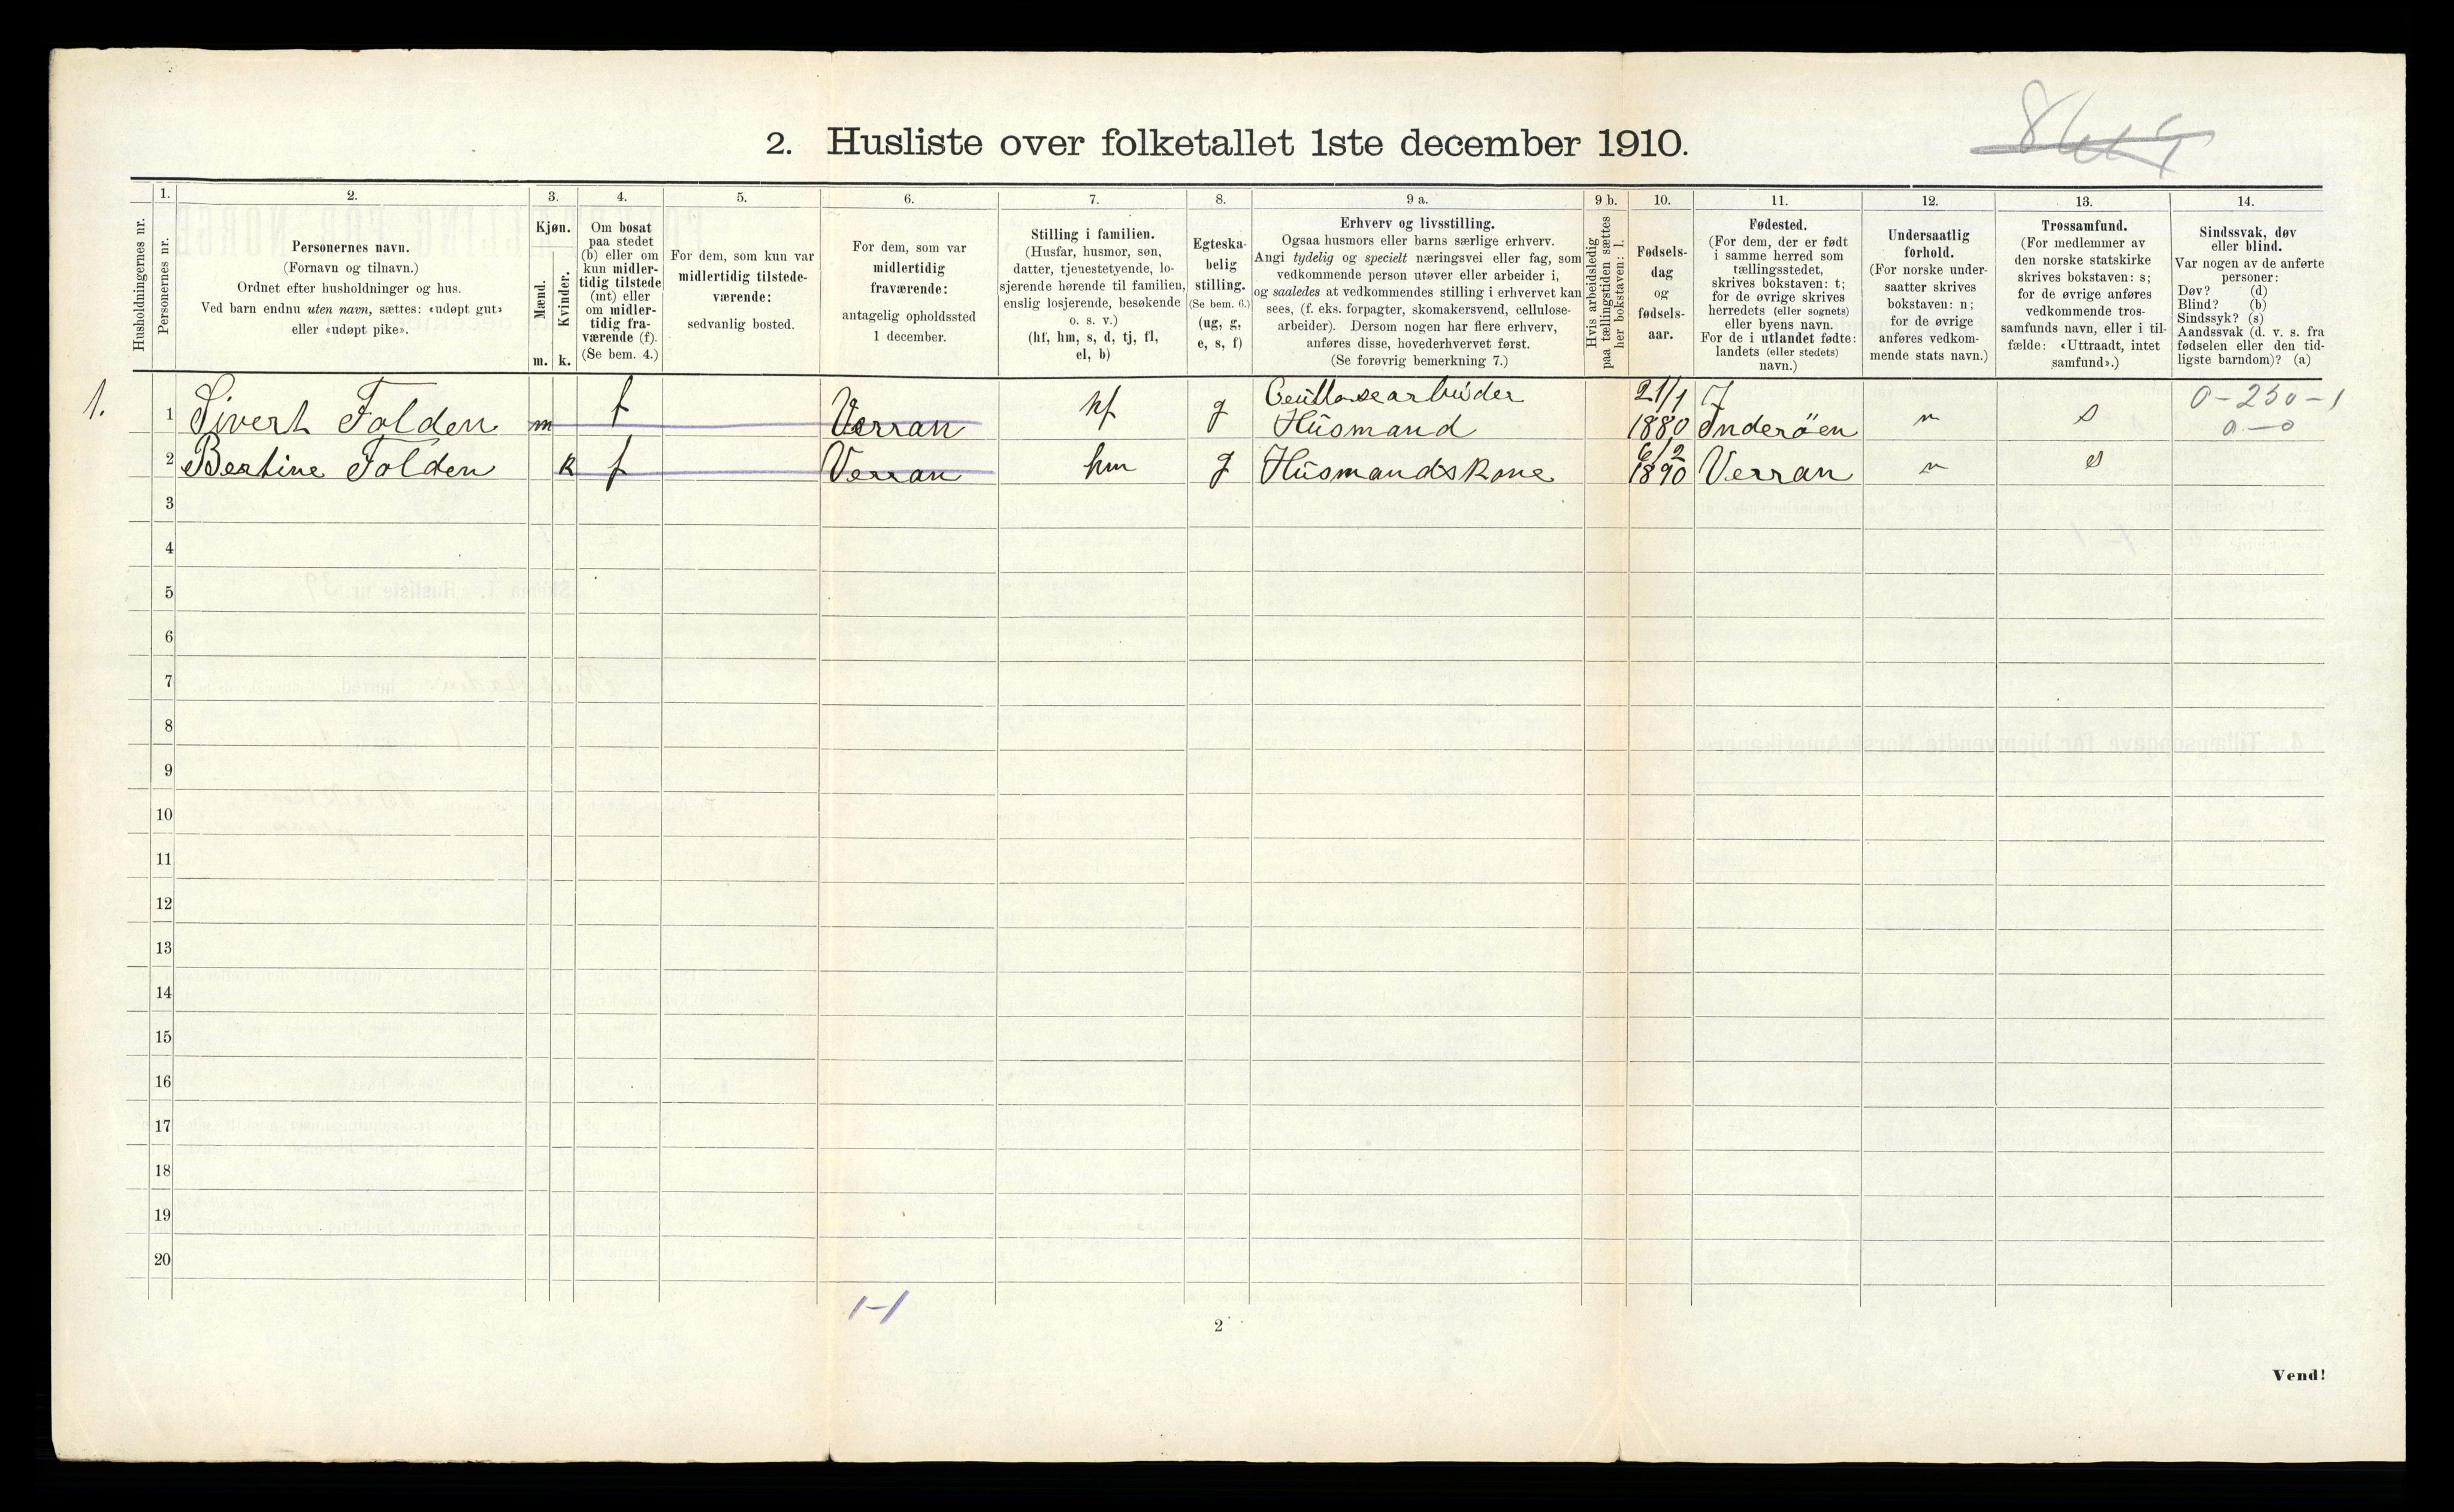 2. Husliste over folketallet 1ste december 1910.
Husholdningernes nr.
1.
Personernes nr.
2.
Personernes navn.
(Fornavn og tilnavn.)
Ordnet efter husholdninger og hus.
Ved barn endnu uten navn, sættes: «udøpt gut»
eller «udøpt pike».
3.
Kjøn.
Mænd.
Kvinder.
m. k.
4.
Om bosat
paa stedet
(b) eller om
kun midler-
tidig tilstede
(mt) eller
om midler-
tidig fra-
værende (f).
(Se bem. 4.)
5.
For dem, som kun var
midlertidig tilstede-
værende:
sedvanlig bosted.
6.
For dem, som var
midlertidig
fraværende:
antagelig opholdssted
1 december.
7.
Stilling i familien.
(Husfar, husmor, søn,
datter, tjenestetyende, lo-
sjerende hørende til familien,
enslig losjerende, besøkende
o. s. v.)
(hf, hm, s, d, tj, fl,
el, b)
8.
Egteska-
belig
stilling.
(Se bem. 6.)
(ug, g,
e, s, f)
9 a.
Erhverv og livsstilling.
Ogsaa husmors eller barns særlige erhverv.
Angi tydelig og specielt næringsvei eller fag, som
vedkommende person utøver eller arbeider i,
og saaledes at vedkommendes stilling i erhvervet kan
sees, (f. eks. forpagter, skomakersvend, cellulose-
arbeider). Dersom nogen har flere erhverv,
anføres disse, hovederhvervet først.
(Se forøvrig bemerkning 7.)
9 b.
Hvis arbeidsledig
paa tællingstiden sættes
her bokstaven: l.
10.
Fødsels-
dag
og
fødsels-
aar.
11.
Fødested.
(For dem, der er født
i samme herred som
tællingsstedet,
skrives bokstaven: t;
for de øvrige skrives
herredets (eller sognets)
eller byens navn.
For de i utlandet fødte:
landets (eller stedets)
navn.)
12.
Undersaatlig
forhold.
(For norske under-
saatter skrives
bokstaven: n;
for de øvrige
anføres vedkom-
mende stats navn.)
13.
Trossamfund.
(For medlemmer av
den norske statskirke
skrives bokstaven: s;
for de øvrige anføres
vedkommende tros-
samfunds navn, eller i til-
fælde: «Uttraadt, intet
samfund».)
14.
Sindssvak, døv
eller blind.
Var nogen av de anførte
personer:
Døv? (d)
Blind? (b)
Sindssyk? (s)
Aandssvak (d. v. s. fra
fødselen eller den tid-
ligste barndom)? (a)
1. 1 Sivert Folden m f Verran hf g
Husmand 21/1 1880 Inderöen n s 0-250-1
0-0
2 Bertine Folden k f Verran hm g Husmandskone 6/2 1890 Verran n s
3
4
5
6
7
8
9
10
11
12
13
14
15
16
17
18
19
20
1-1
2
Vend!